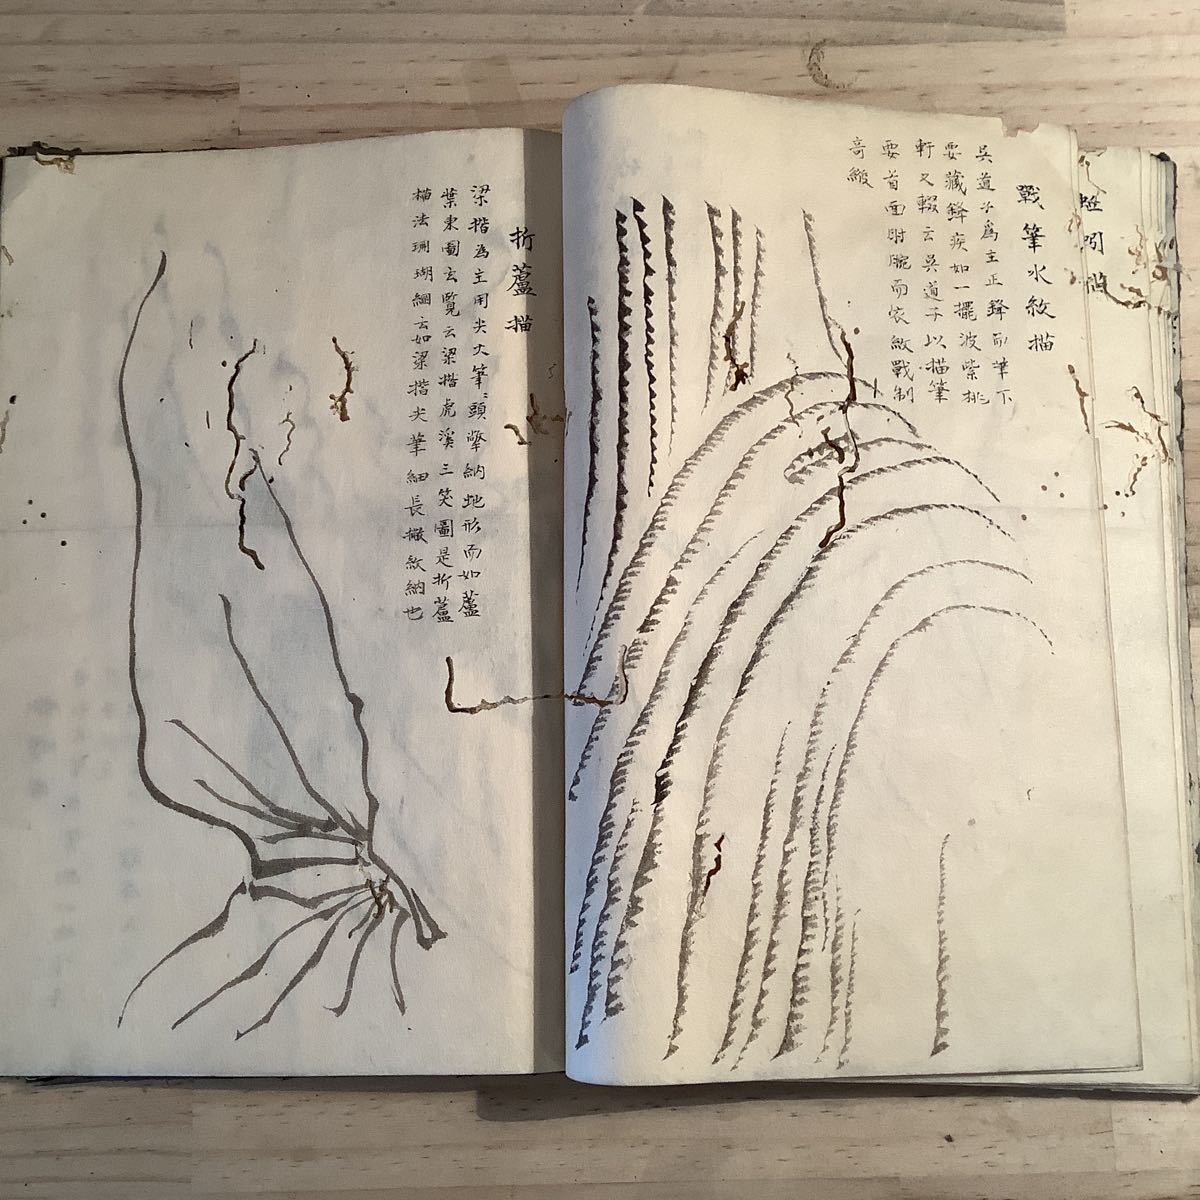 戰筆水紋描
吳道子為主正鋒而筆下
要藏鋒疾如一擺波紫挑
軒又輟云吳道子以描筆
要首面肘腕而衣紋戰制
奇縱
折蘆描
梁揩為主用尖丈筆頭撆納地形而如蘆
葉東圖玄覧云梁揩虎溪三笑圖是折蘆
描法珊瑚網云如梁揩尖筆細長撇紋納也
蚯蚓描